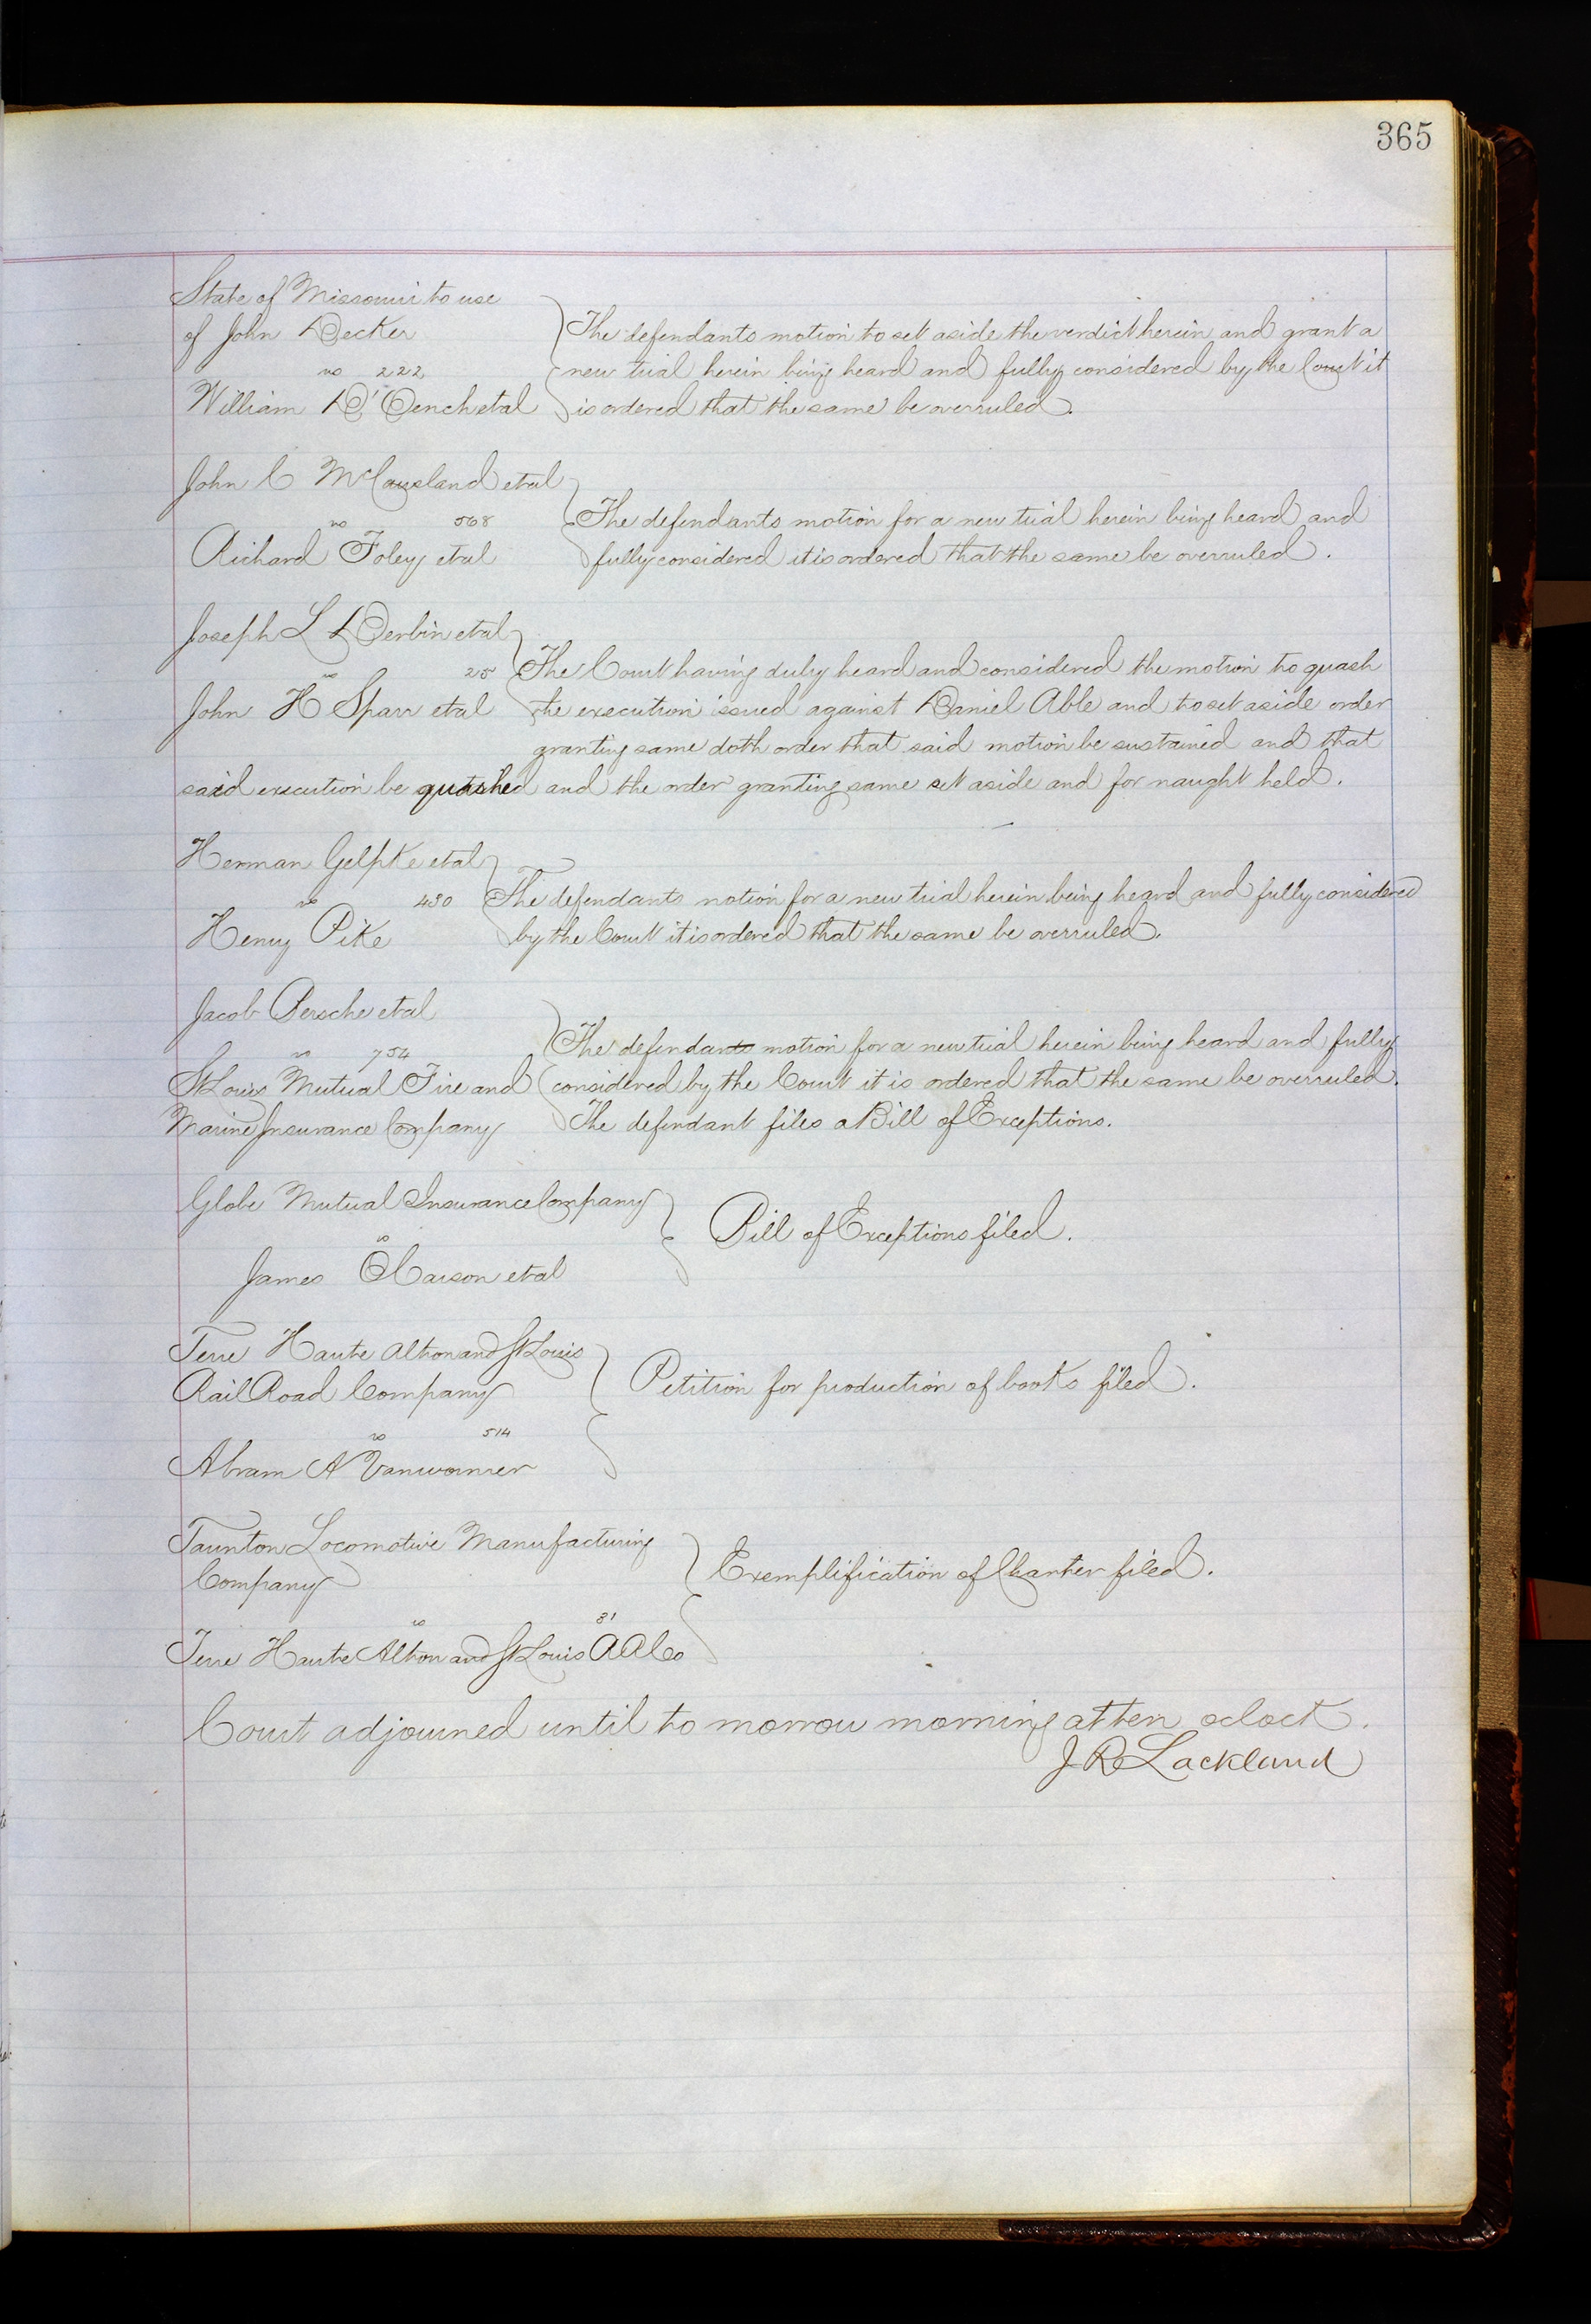 365
State of Missouri to use
of John Decker
vs 222
William D'Oench et al
The defendants motion to set aside the verdict herein and grant a
new trial herein being heard and fully considered by the Court it
is ordered that the same be overruled.
John C McCausland et al
vs 568
Richard Foley et al
The defendants motion for a new trial herein being heard and
fully considered it is ordered that the same be overruled.
Joseph L Derbin et al
vs 25
John H Sparr et al
The Court having duly heard and considered the motion to quash
the execution issued against Daniel Able and to set aside order
granting same doth order that said motion be sustained and that
said execution be quashed and the order granting same set aside and for naught held.
Herman Gelpke et al
vs 430
Henry Pike
The defendants motion for a new trial herein being heard and fully considered
by the Court it is ordered that the same be overruled.
Jacob Persche et al
vs 754
St Louis Mutual Fire and
Marine Insurance Company
The defendants motion for a new trial herein being heard and fully
considered by the Court it is ordered that the same be overruled.
The defendant files a Bill of Exceptions.
Globe Mutual Insurance Company
vs
James O Carson et al
Bill of Exceptions filed.
Terre Haute Alton and St Louis
Rail Road Company
vs 514
Abram A Vanwormer
Petition for production of books filed.
Taunton Locomotive Manufacturing
Company
vs 81
Terre Haute Alton and St Louis R R Co
Exemplification of Charter filed.
Court adjourned until to morrow morning at ten oclock.
J R Lackland